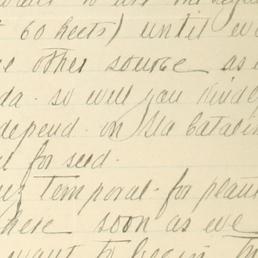 60 hects) until
other source as
da. so will you kindly
depend on Sta Catalin
for seed.
temporal for plant
here soon as we
want to begin